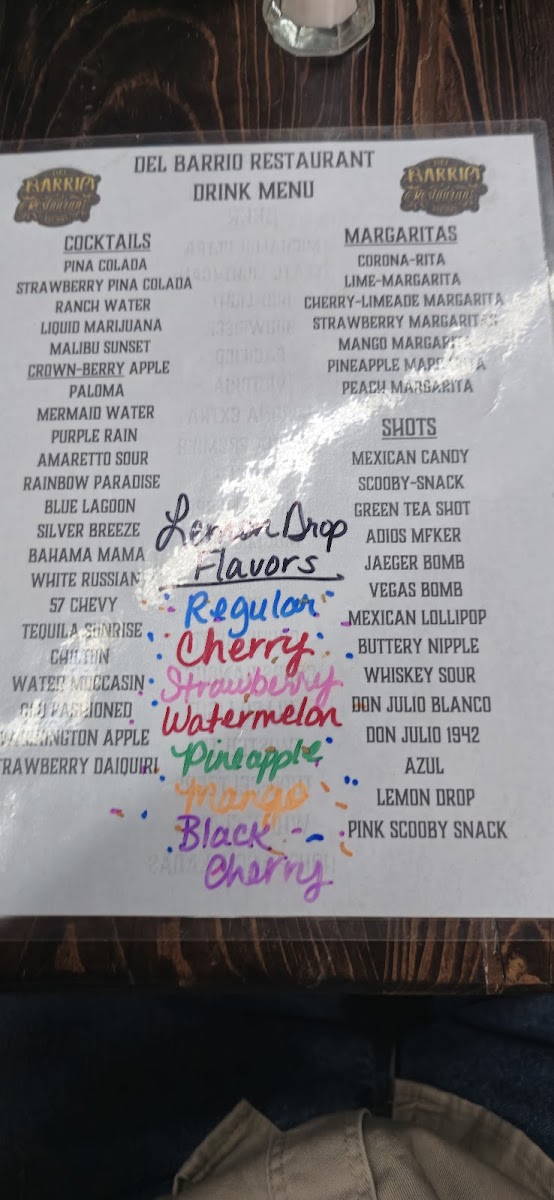 DEL BARRIO RESTAURANT
DRINK MENU
DEL
BARRIO
Restaurant
DEL
BARRIO
Restaurant
COCKTAILS
PINA COLADA
STRAWBERRY PINA COLADA
RANCH WATER
LIQUID MARIJUANA
MALIBU SUNSET
CROWN-BERRY APPLE
PALOMA
MERMAID WATER
PURPLE RAIN
AMARETTO SOUR
RAINBOW PARADISE
BLUE LAGOON
SILVER BREEZE
BAHAMA MAMA
WHITE RUSSIAN
57 CHEVY
TEQUILA SUNRISE
CHILTON
WATER MOCCASIN
OLD FASHIONED
WASHINGTON APPLE
STRAWBERRY DAIQUIRI
Lemon Drop
Flavors
Regular
Cherry
Strawberry
Watermelon
Pineapple
Mango
Black -
Cherry
MARGARITAS
CORONA-RITA
LIME-MARGARITA
CHERRY-LIMEADE MARGARITA
STRAWBERRY MARGARITAS
MANGO MARGARITA
PINEAPPLE MARGARITA
PEACH MARGARITA
SHOTS
MEXICAN CANDY
SCOOBY-SNACK
GREEN TEA SHOT
ADIOS MFKER
JAEGER BOMB
VEGAS BOMB
MEXICAN LOLLIPOP
BUTTERY NIPPLE
WHISKEY SOUR
DON JULIO BLANCO
DON JULIO 1942
AZUL
LEMON DROP
PINK SCOOBY SNACK